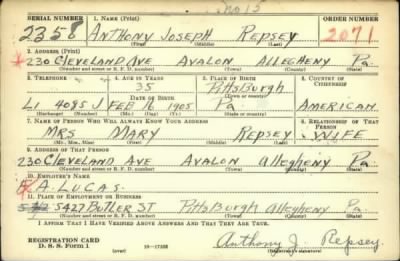 No 15
SERIAL NUMBER 1. NAME (Print) ORDER NUMBER
2358 ANTHONY JOSEPH REPSEY 2071
(First) (Middle) (Last)
2. ADDRESS (Print)
230 CLEVELAND AVE AVALON ALLEGHENY Pa.
(Number and street or R. F. D. number) (Town) (County) (State)
3. TELEPHONE 4. AGE IN YEARS 5. PLACE OF BIRTH 6. COUNTRY OF CITIZENSHIP
35 Pittsburgh
DATE OF BIRTH (Town or county)
LI 4085 J FEB 16 1905 Pa AMERICAN
(Mo.) (Day) (Yr.) (State or country)
7. NAME OF PERSON WHO WILL ALWAYS KNOW YOUR ADDRESS 8. RELATIONSHIP OF THAT PERSON
MRS MARY REPSEY WIFE
(Mr., Mrs., Miss) (First) (Middle) (Last)
9. ADDRESS OF THAT PERSON
230 CLEVELAND AVE AVALON allegheny Pa
(Number and street or R. F. D. number) (Town) (County) (State)
10. EMPLOYER'S NAME
A. LUCAS.
11. PLACE OF EMPLOYMENT OR BUSINESS
5427 BUTLER ST Pittsburgh allegheny Pa
(Number and street or R. F. D. number) (Town) (County) (State)
I AFFIRM THAT I HAVE VERIFIED ABOVE ANSWERS AND THAT THEY ARE TRUE.
REGISTRATION CARD
D. S. S. Form 1 (over) 16—17105 Anthony J. Repsey.
(Registrant's signature)